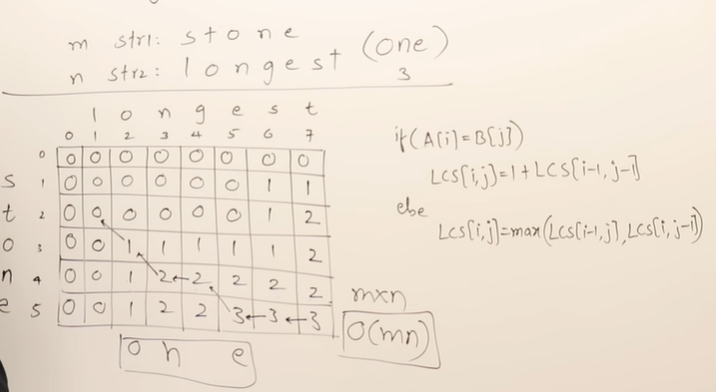 m str1: stone
n str2: longest (one)
3
l o n g e s t
0 1 2 3 4 5 6 7
0 0 0 0 0 0 0 0 0
s 1 0 0 0 0 0 0 1 1
t 2 0 0 0 0 0 0 1 2
o 3 0 0 1 1 1 1 1 2
n 4 0 0 1 2←2 2 2 2
e 5 0 0 1 2 2 3←3←3
o n e
mxn
O(mn)
if(A[i]=B[j])
LCS[i,j]=1+LCS[i-1,j-1]
else
LCS[i,j]=max(LCS[i-1,j],LCS[i,j-1])